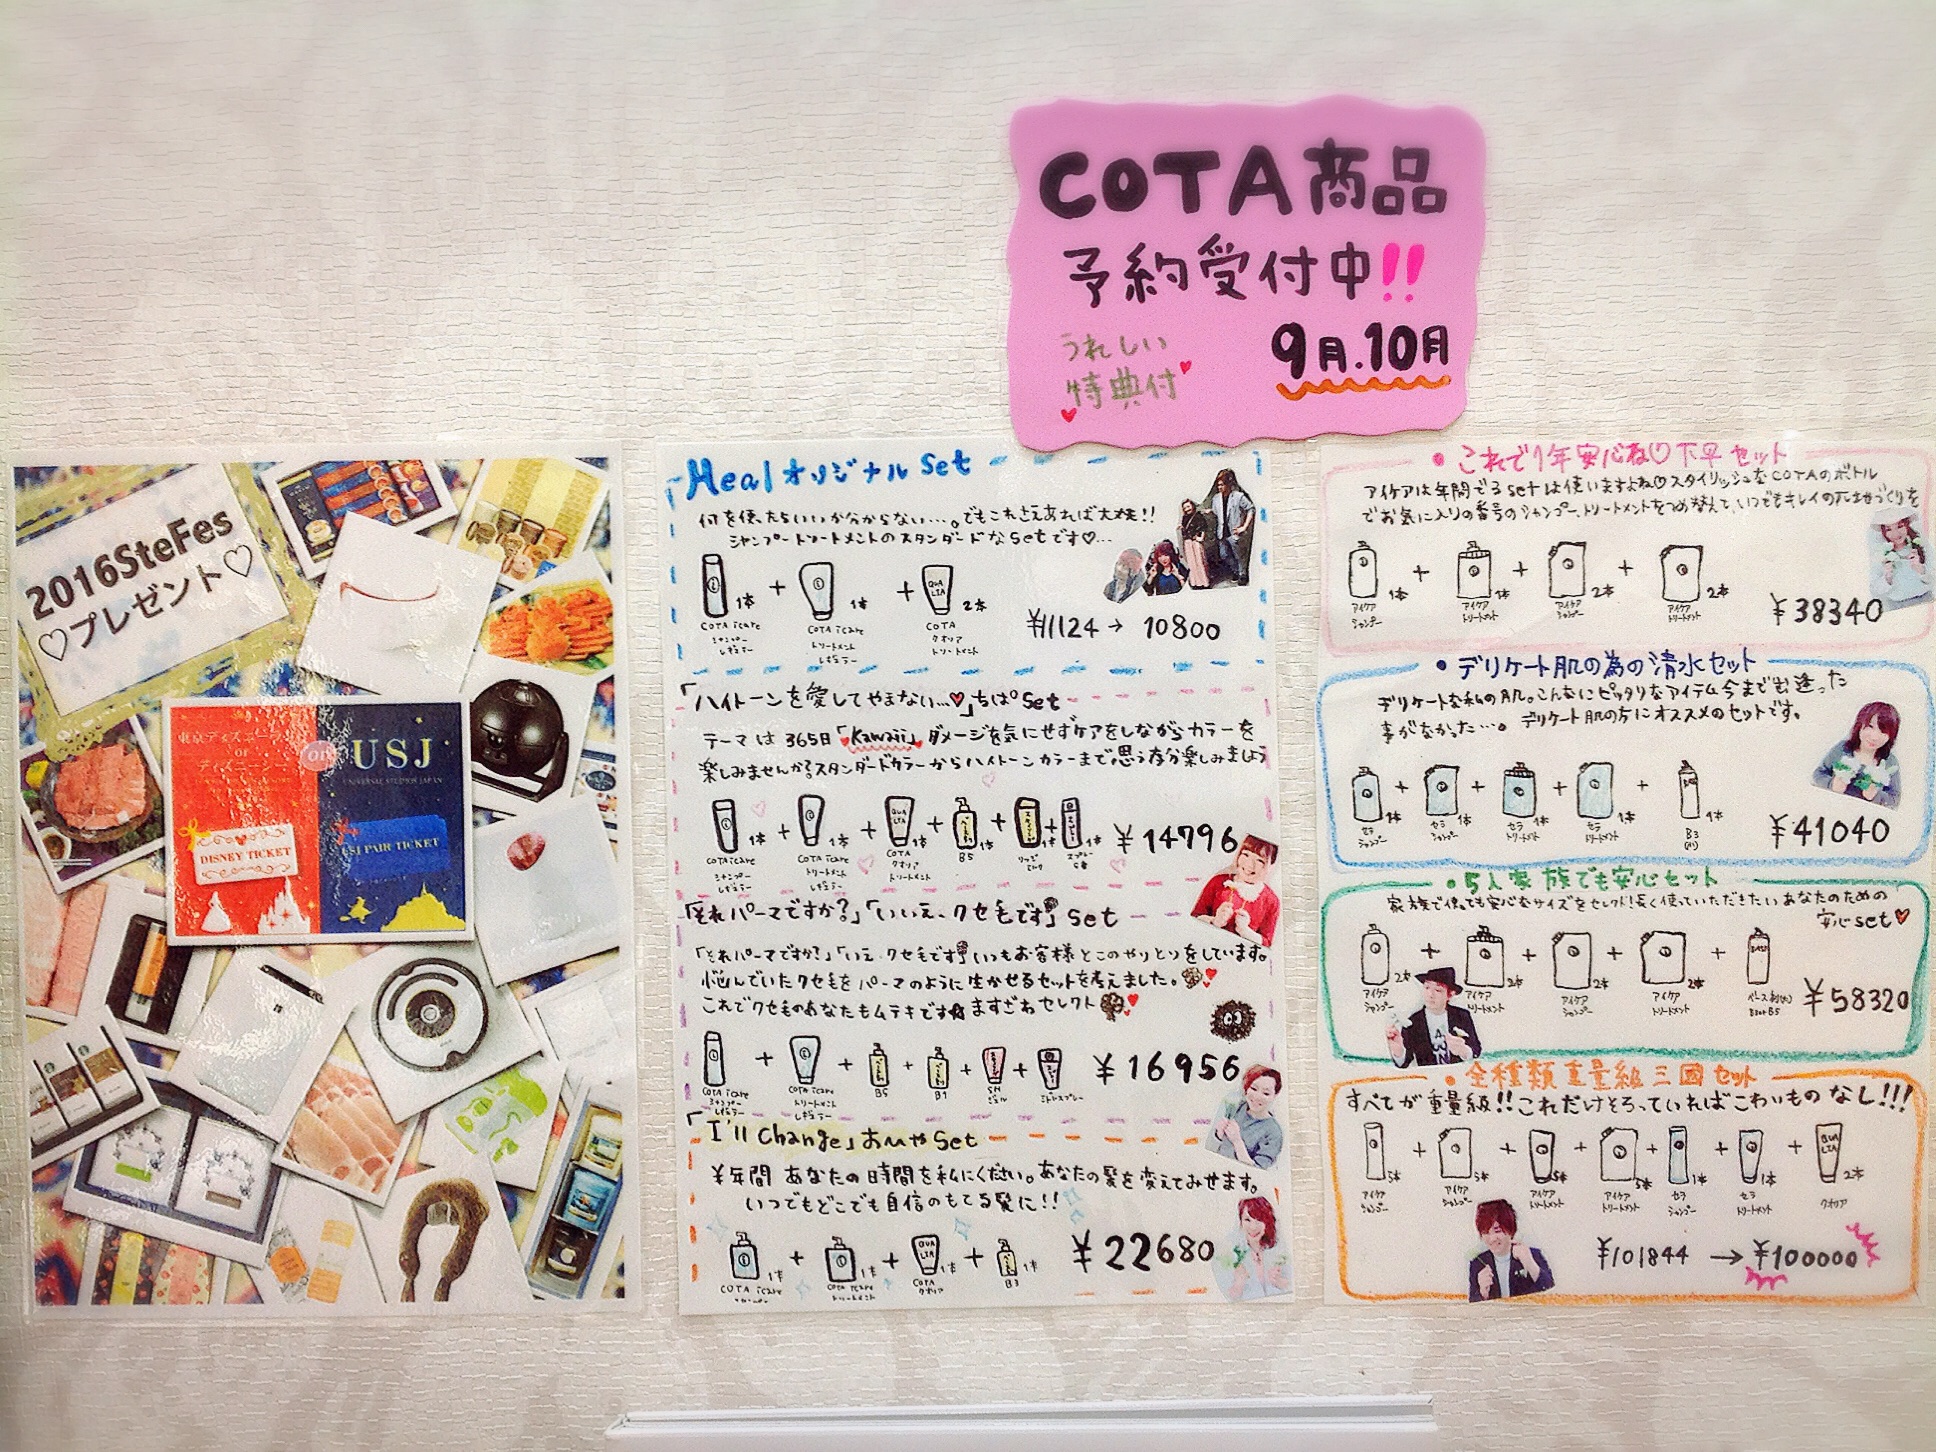 COTA商品
予約受付中!!
うれしい
特典付
9月.10月
2016SteFes
♡プレゼント♡
東京ディズニー
or
ディズニーシー
or
USJ
UNIVERSAL STUDIOS JAPAN
DISNEY TICKET
USJ PAIR TICKET
MealオリジナルSet
何を使ったらいいか分からない…。でもこれさえあれば大丈夫!!
シャンプートリートメントのスタンダードなSetです♡…
1本 + 1本 + QUALIA 2本
COTA icare
シャンプー
レギュラー
COTA icare
トリートメント
レギュラー
COTA
クオリア
トリートメント
¥11124→10800
「ハイトーンを愛してやまない…♥」ちぱ°Set
テーマは365日「Kawaii」ダメージを気にせずケアをしながらカラーを
楽しみませんか?スタンダードカラーからハイトーンカラーまで思う存分楽しみましょう
¥14796
COTA icare
シャンプー
レギュラー
COTA icare
トリートメント
レギュラー
COTA
クオリア
トリートメント
B5
「それパーマですか?」「いいえ、クセ毛です」Set
「それパーマですか?」「いえ、クセ毛です」いつもお客様とこのやりとりをしています。
悩んでいたクセ毛をパーマのように生かせるセットを考えました。
これでクセ毛のあなたもムテキです☆ますざわセレクト
¥16956
COTA icare
シャンプー
レギュラー
COTA icare
トリートメント
レギュラー
B5
B1
「I'll Change」おーやSet
¥年間 あなたの時間を私にください。あなたの髪を変えてみせます。
いつでもどこでも自信のもてる髪に!!
¥22680
COTA icare
COTA icare
トリートメント
COTA
クオリア
B3
・これで1年安心ね♡下早セット
アイケアは年間で3setは使いますよね♡スタイリッシュなCOTAのボトル
でお気に入りの番号のシャンプー、トリートメントをつめ替えて、いつでもキレイの土台づくりを
1本 + 1本 + 2本 + 2本
アイケア
シャンプー
アイケア
トリートメント
アイケア
シャンプー
アイケア
トリートメント
¥38340
・デリケート肌の為の清水セット
デリケートな私の肌。こんなにピッタリなアイテム今まで出逢った
事がなかった…。デリケート肌の方にオススメのセットです。
セラ
シャンプー
セラ
シャンプー
セラ
トリートメント
セラ
トリートメント
B3
¥41040
・5人家族でも安心セット
家族で使っても安心なサイズをセレクト!長く使っていただきたいあなたのための
安心set♥
アイケア
シャンプー
アイケア
トリートメント
アイケア
シャンプー
アイケア
トリートメント
¥58320
・全種類重量級三国セット
すべてが重量級!!これだけそろっていればこわいものなし!!!
5本 + 5本 + 5本 + 5本 + 1本 + 1本 + QUALIA 2本
アイケア
シャンプー
アイケア
シャンプー
アイケア
トリートメント
アイケア
トリートメント
セラ
シャンプー
セラ
トリートメント
クオリア
¥101844→¥100000